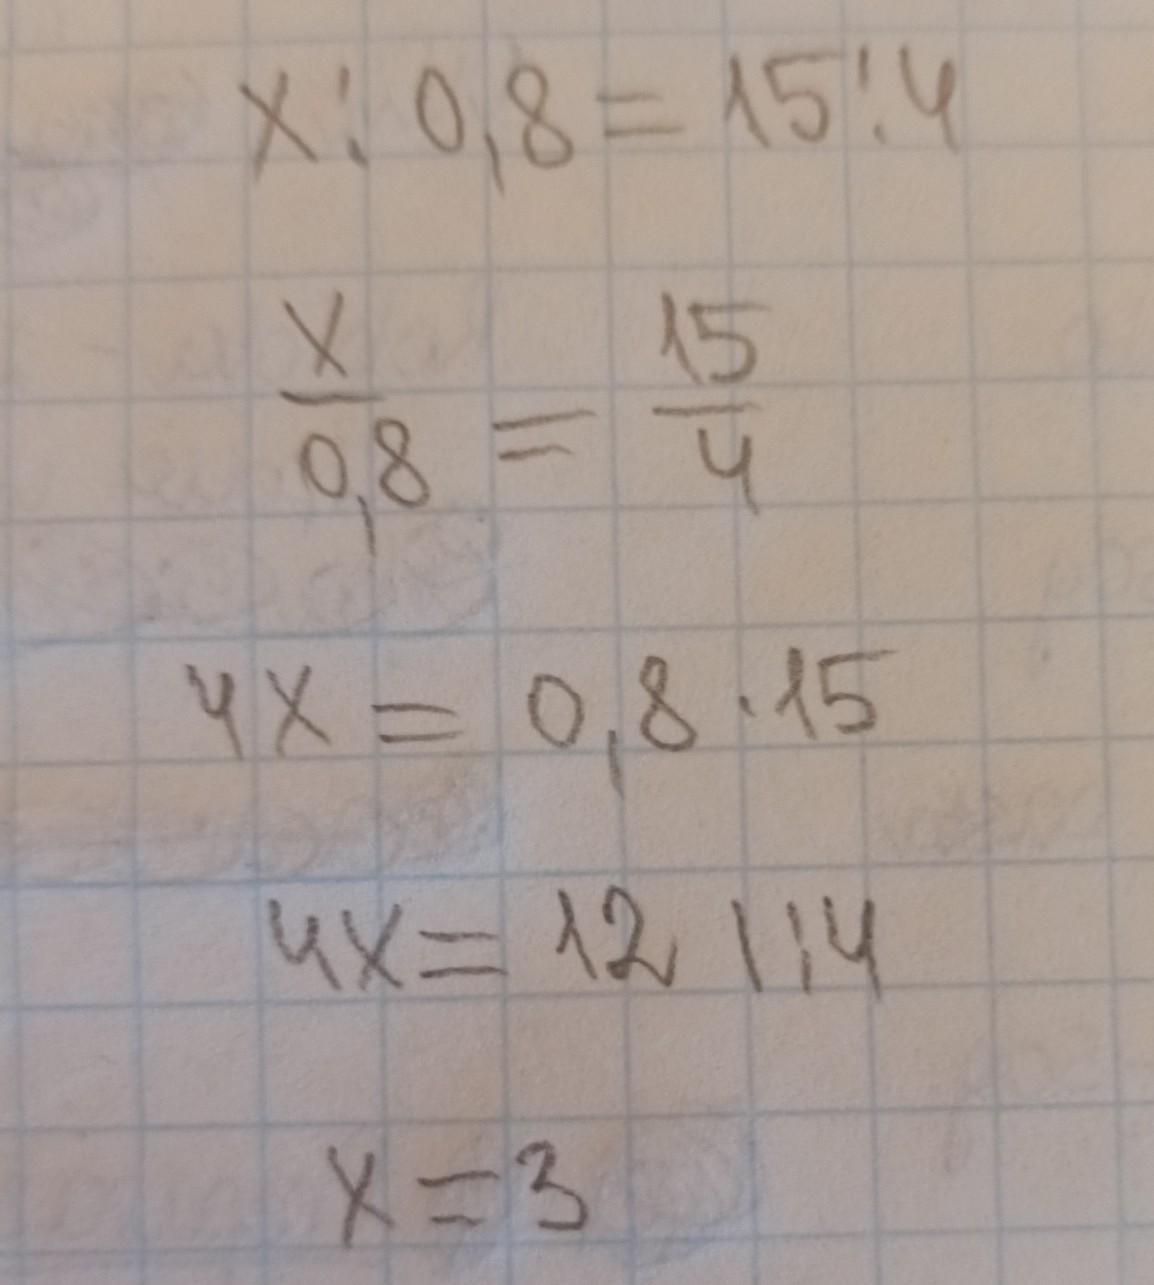 x : 0,8 = 15 : 4
x/0,8 = 15/4
4x = 0,8 · 15
4x = 12 | : 4
x = 3